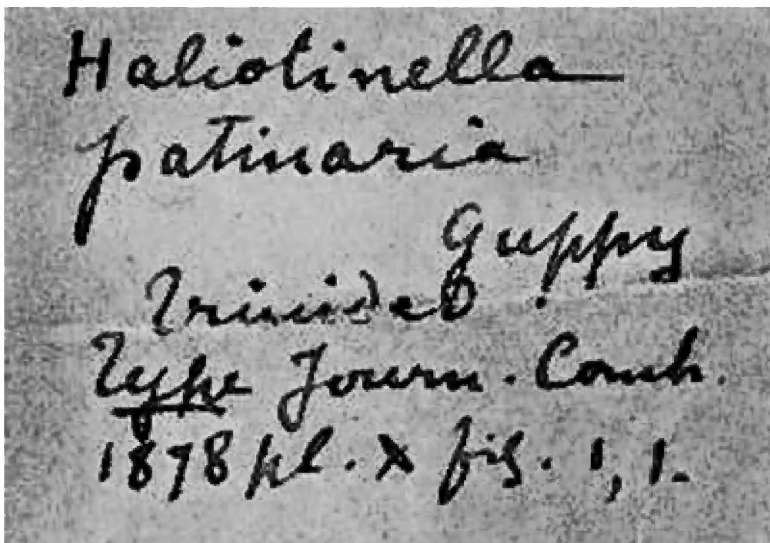 Haliotinella
patinaria
Guppy
Trinidad.
Type Journ. Conch.
1898 pl. X fig. 1, 1.